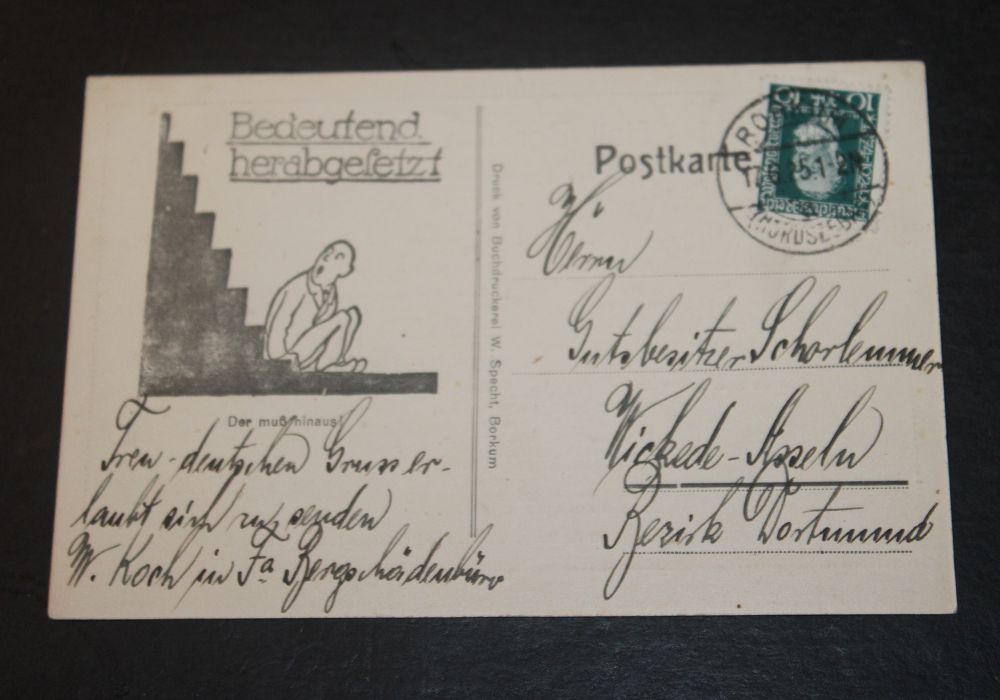 Bedeutend
herabgesetzt
Der muß hinaus!
Treu-deutschen Gruss er-
laubt sich zu senden
W. Koch in Fa Bergschädenbüro
Druck von Buchdruckerei W. Specht, Borkum
Postkarte
10 10
5.1-2N
(NORDSEE)
Herrn
Gutsbesitzer Schorlemmer
Wickede-Asseln
Bezirk Dortmund